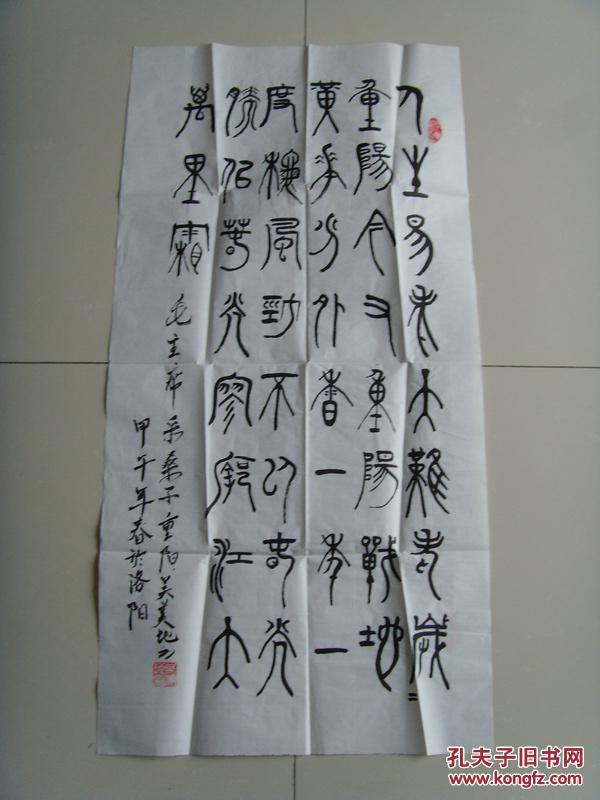 人生易老天難老歲〻
重陽今又重陽戰地
黃花分外香一年一
度秋風勁不似春光
勝似春光寥廓江天
萬里霜
毛主席采桑子重阳
甲午年春於洛阳
孔夫子旧书网
www.kongfz.com